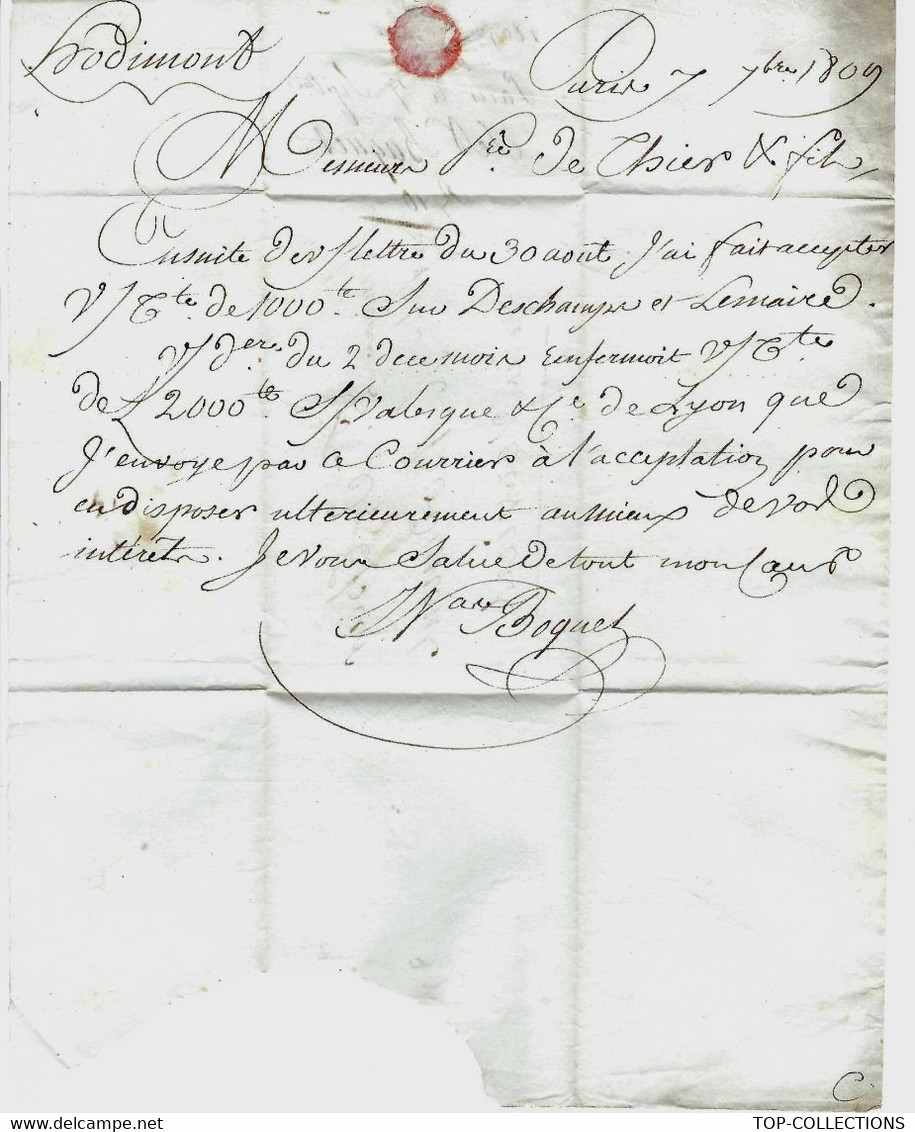 hodimont
Paris 7 7bre 1809
Messieurs Pre. de Thier & fils
Ensuite de v/ lettre du 30 aout, J'ai fait accepter
V/ Tte. de 1000 tt. Sur Deschamps et Lemaire.
V/ der. du 2 de ce mois Renfermoit V/ Tte
de £ 2000 tt S/ Valesque & Ce. de Lyon que
J'envoye par ce Courrier à l'acceptation pour
en disposer ulterieurement au mieux de vos
intérêts. Je vous Salue de tout mon Cœur
Boquet
C.
TOP-COLLECTIONS